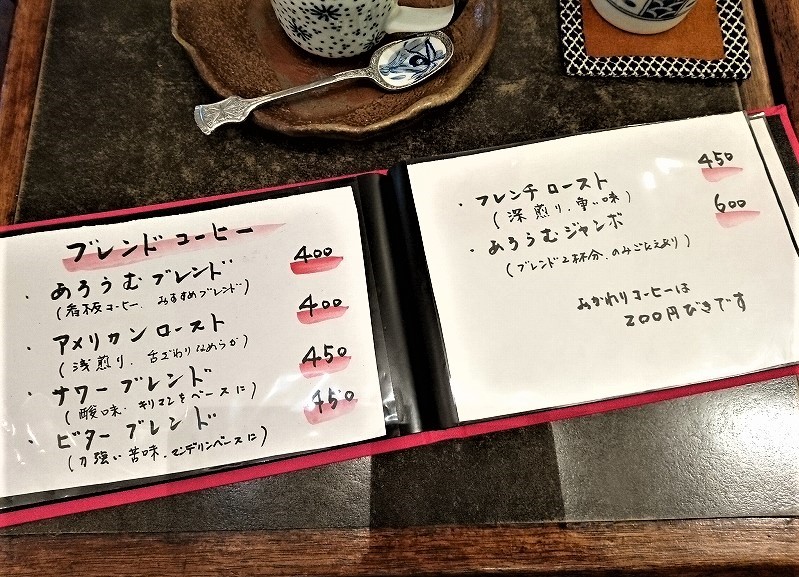 ブレンド コーヒー
・ あろうむ ブレンド 400
(看板コーヒー、おすすめブレンド)
・ アメリカン ロースト 400
(浅煎り、舌ざわりなめらか)
・ サワー ブレンド 450
(酸味・キリマンをベースに)
・ ビター ブレンド 450
(力強い苦味、マンデリンベースに)
・ フレンチ ロースト 450
(深煎り、重い味)
・ あろうむ ジャンボ 600
(ブレンド2杯分、のみごたえあり)
おかわりコーヒーは
200円びきです